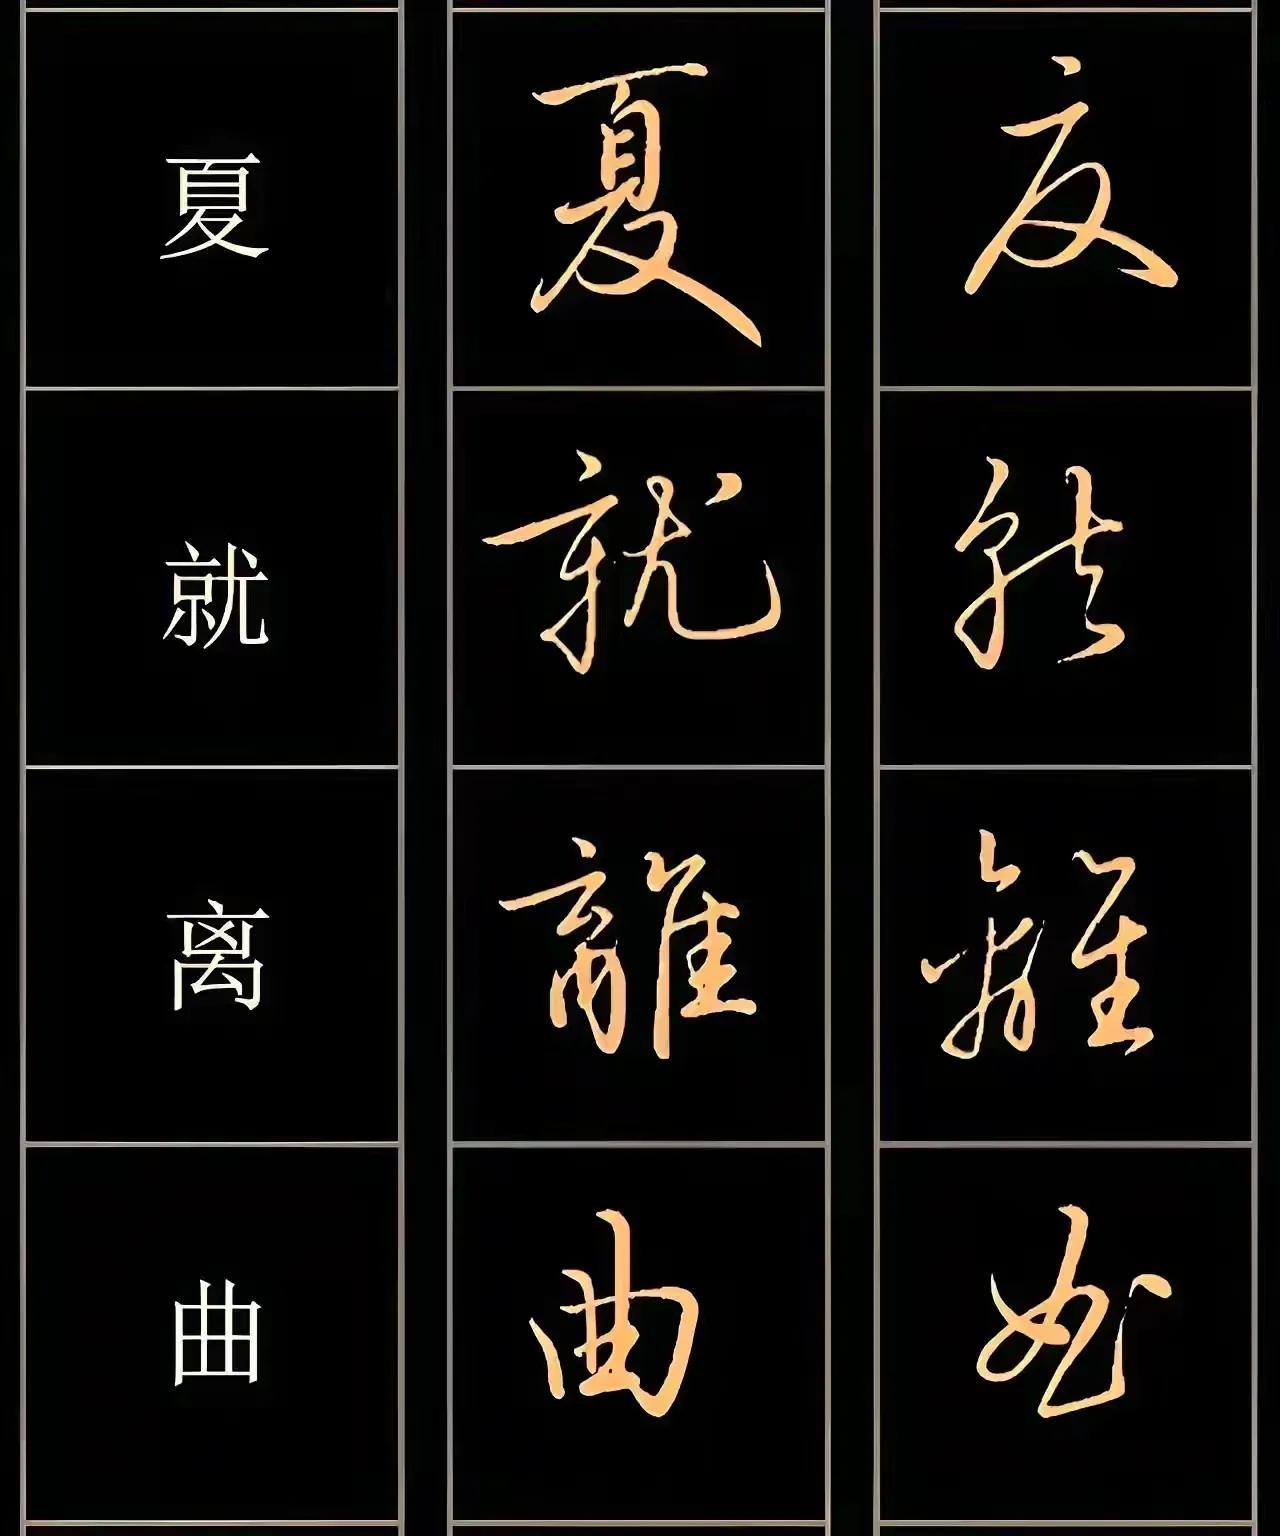 夏 夏 夏
就 就 就
离 離 離
曲 曲 曲